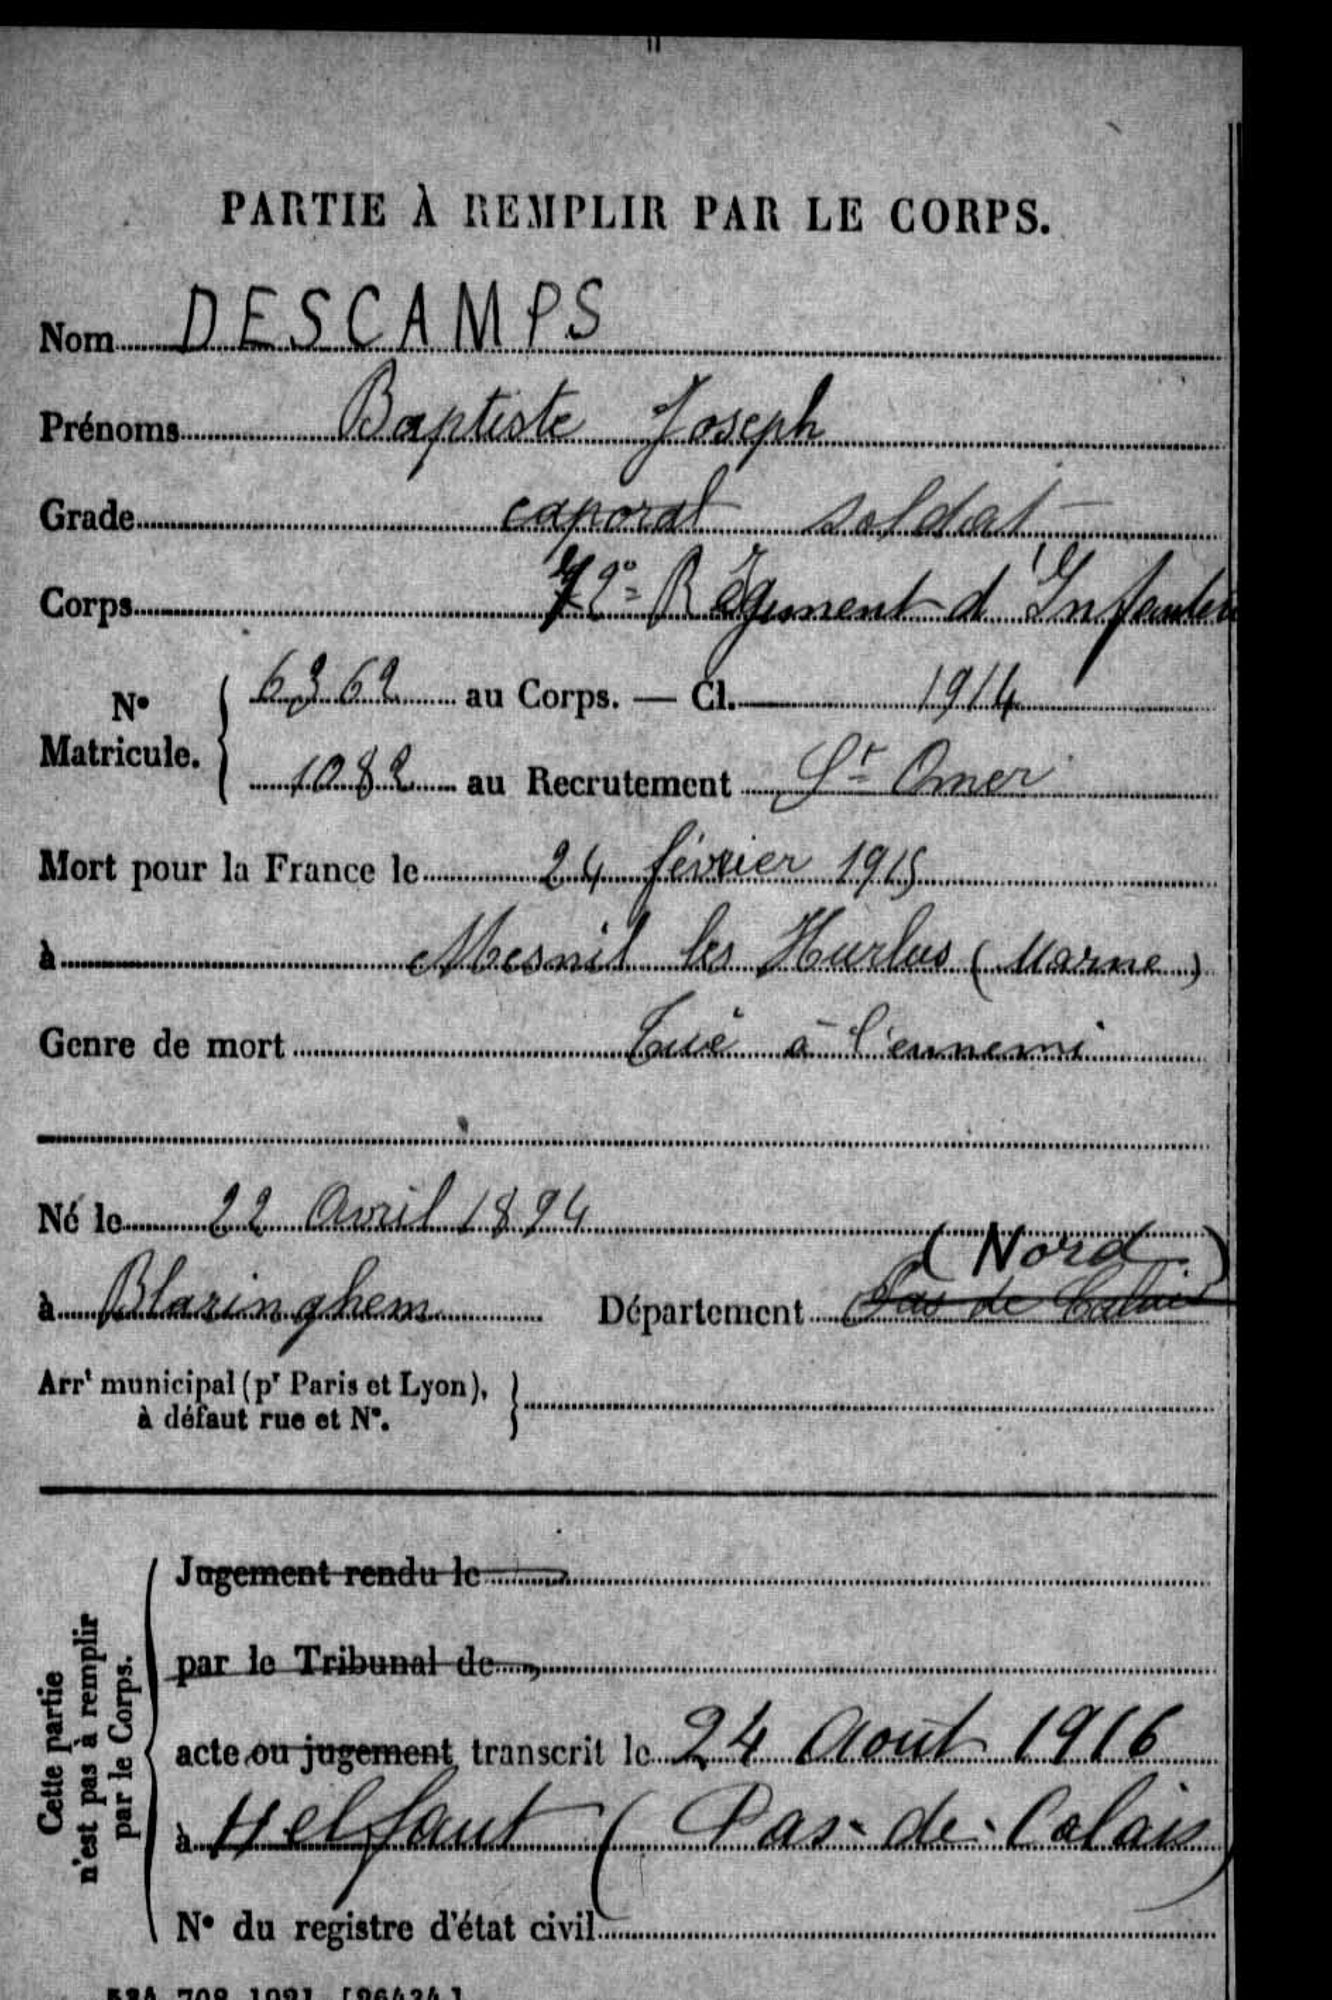 PARTIE À REMPLIR PAR LE CORPS.
Nom DESCAMPS
Prénoms Baptiste Joseph
Grade caporal soldat
Corps 72e Régiment d'Infanterie
N° Matricule. 6362 au Corps. — Cl. 1914
1082 au Recrutement St Omer
Mort pour la France le 24 février 1915
à Mesnil les Hurlus (Marne)
Genre de mort Tué à l'ennemi
Né le 22 Avril 1894
(Nord)
à Blaringhem Département Pas de Calais
Arrt municipal (pr Paris et Lyon),
à défaut rue et N°.
Cette partie
n'est pas à remplir
par le Corps.
Jugement rendu le
par le Tribunal de
acte ou jugement transcrit le 24 Août 1916
à Helfaut (Pas-de-Calais)
N° du registre d'état civil
534 708 1921 [26434]